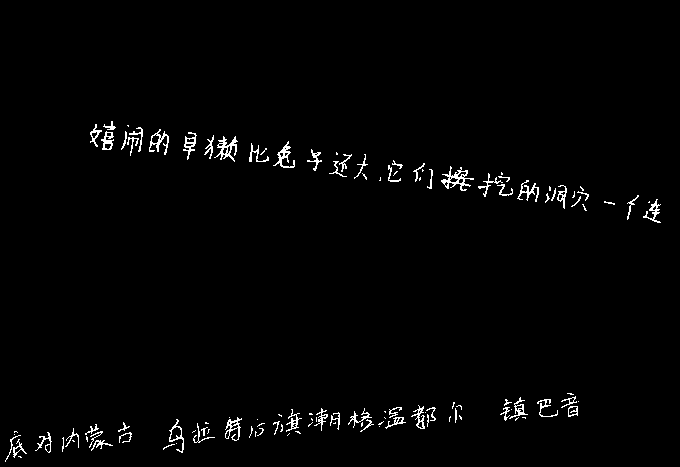 嬉闹的旱獭比兔子还大,它们挖的洞穴一个连
底对内蒙古 乌拉特后旗潮格温都尔 镇巴音